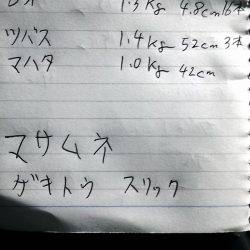 1.5kg 4.8cm 16本
ツバス 1.4kg 52cm 3本
マハタ 1.0kg 42cm
マサムネ
ゲキトウ スリック